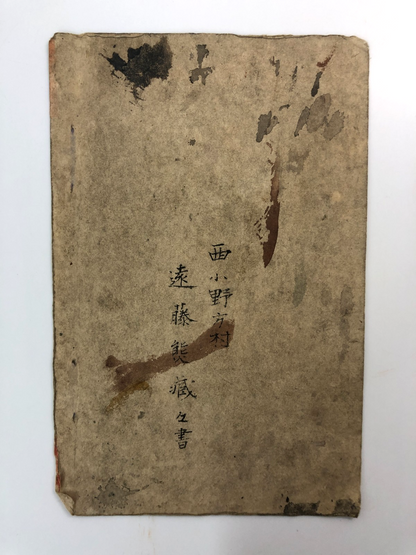 西小野方村
遠藤熊藏々書